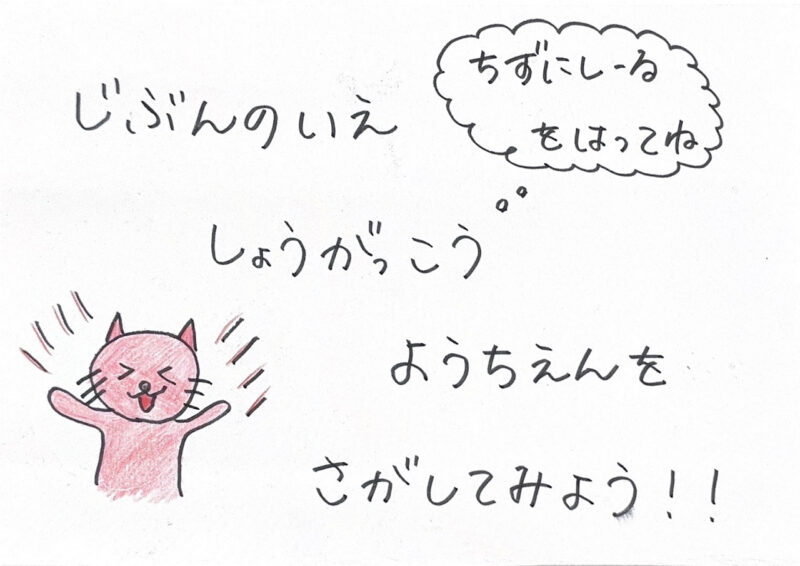 じぶんのいえ
しょうがっこう
ようちえんを
さがしてみよう!!
ちずにしーる
をはってね